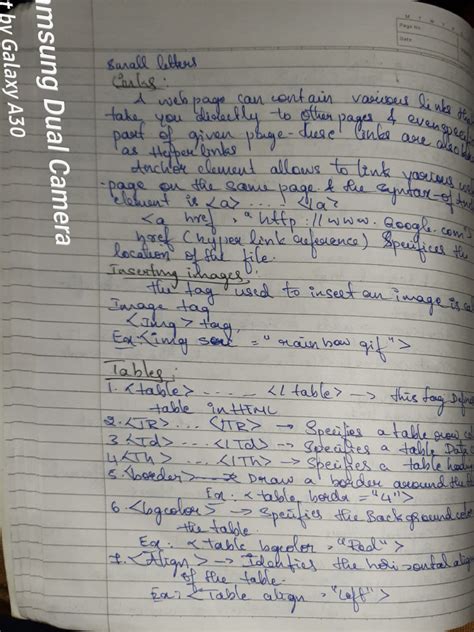 Small letters
Links :
A web page can contain various links that
take you directly to other pages & even specific
part of given page these links are also
as Hyperlinks
Anchor element allows to link various
-page on the same page & the syntax of
element is <a> .... </a>
<a href, "http://www.Google.com">
href (hyper link reference) specifices the
location of the file.
Inserting images :
the tag used to insert an image is
Image tag
<Img> tag,
Ex:- <img src = "rainbow gif">
Tables :
1. <table> ..... </table> → this tag Define
table in HTML
2. <TR> ... </TR> → Specifies a table row
3 <Td> ... </Td> → Specifies a table Data
4 <Th> ... </Th> → Specifies a table
5. <border> → Draw a border around the
Ex : <table border = "4">
6. <bgcolor> → Specifies the Background
the table.
Ex : <table bgcolor, "Red">
7. <Align> → Identifies the horizontal
of the table.
Ex: <Table align, "left">
Page No
Date
msung Dual Camera
t by Galaxy A30